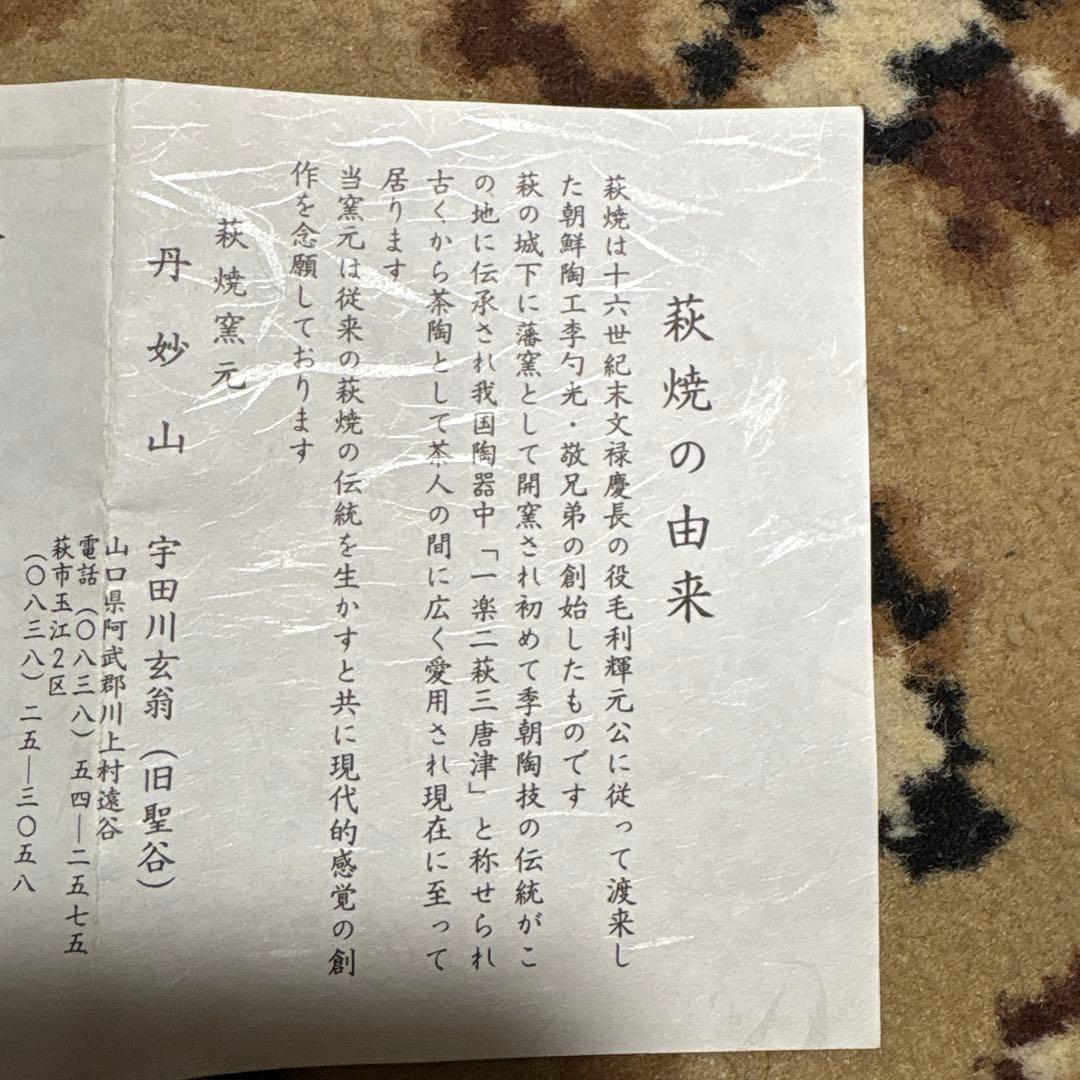 萩焼の由来
萩焼は十六世紀末文禄慶長の役毛利輝元公に従って渡来し
た朝鮮陶工李勺光・敬兄弟の創始したものです
萩の城下に藩窯として開窯され初めて季朝陶技の伝統がこ
の地に伝承され我国陶器中「一楽二萩三唐津」と称せられ
古くから茶陶として茶人の間に広く愛用され現在に至って
居ります
当窯元は従来の萩焼の伝統を生かすと共に現代的感覚の創
作を念願しております
萩焼窯元
丹妙山 宇田川玄翁(旧聖谷)
山口県阿武郡川上村遠谷
電話(〇八三八)五四―二五七五
萩市玉江2区
(〇八三八)二五―三〇五八